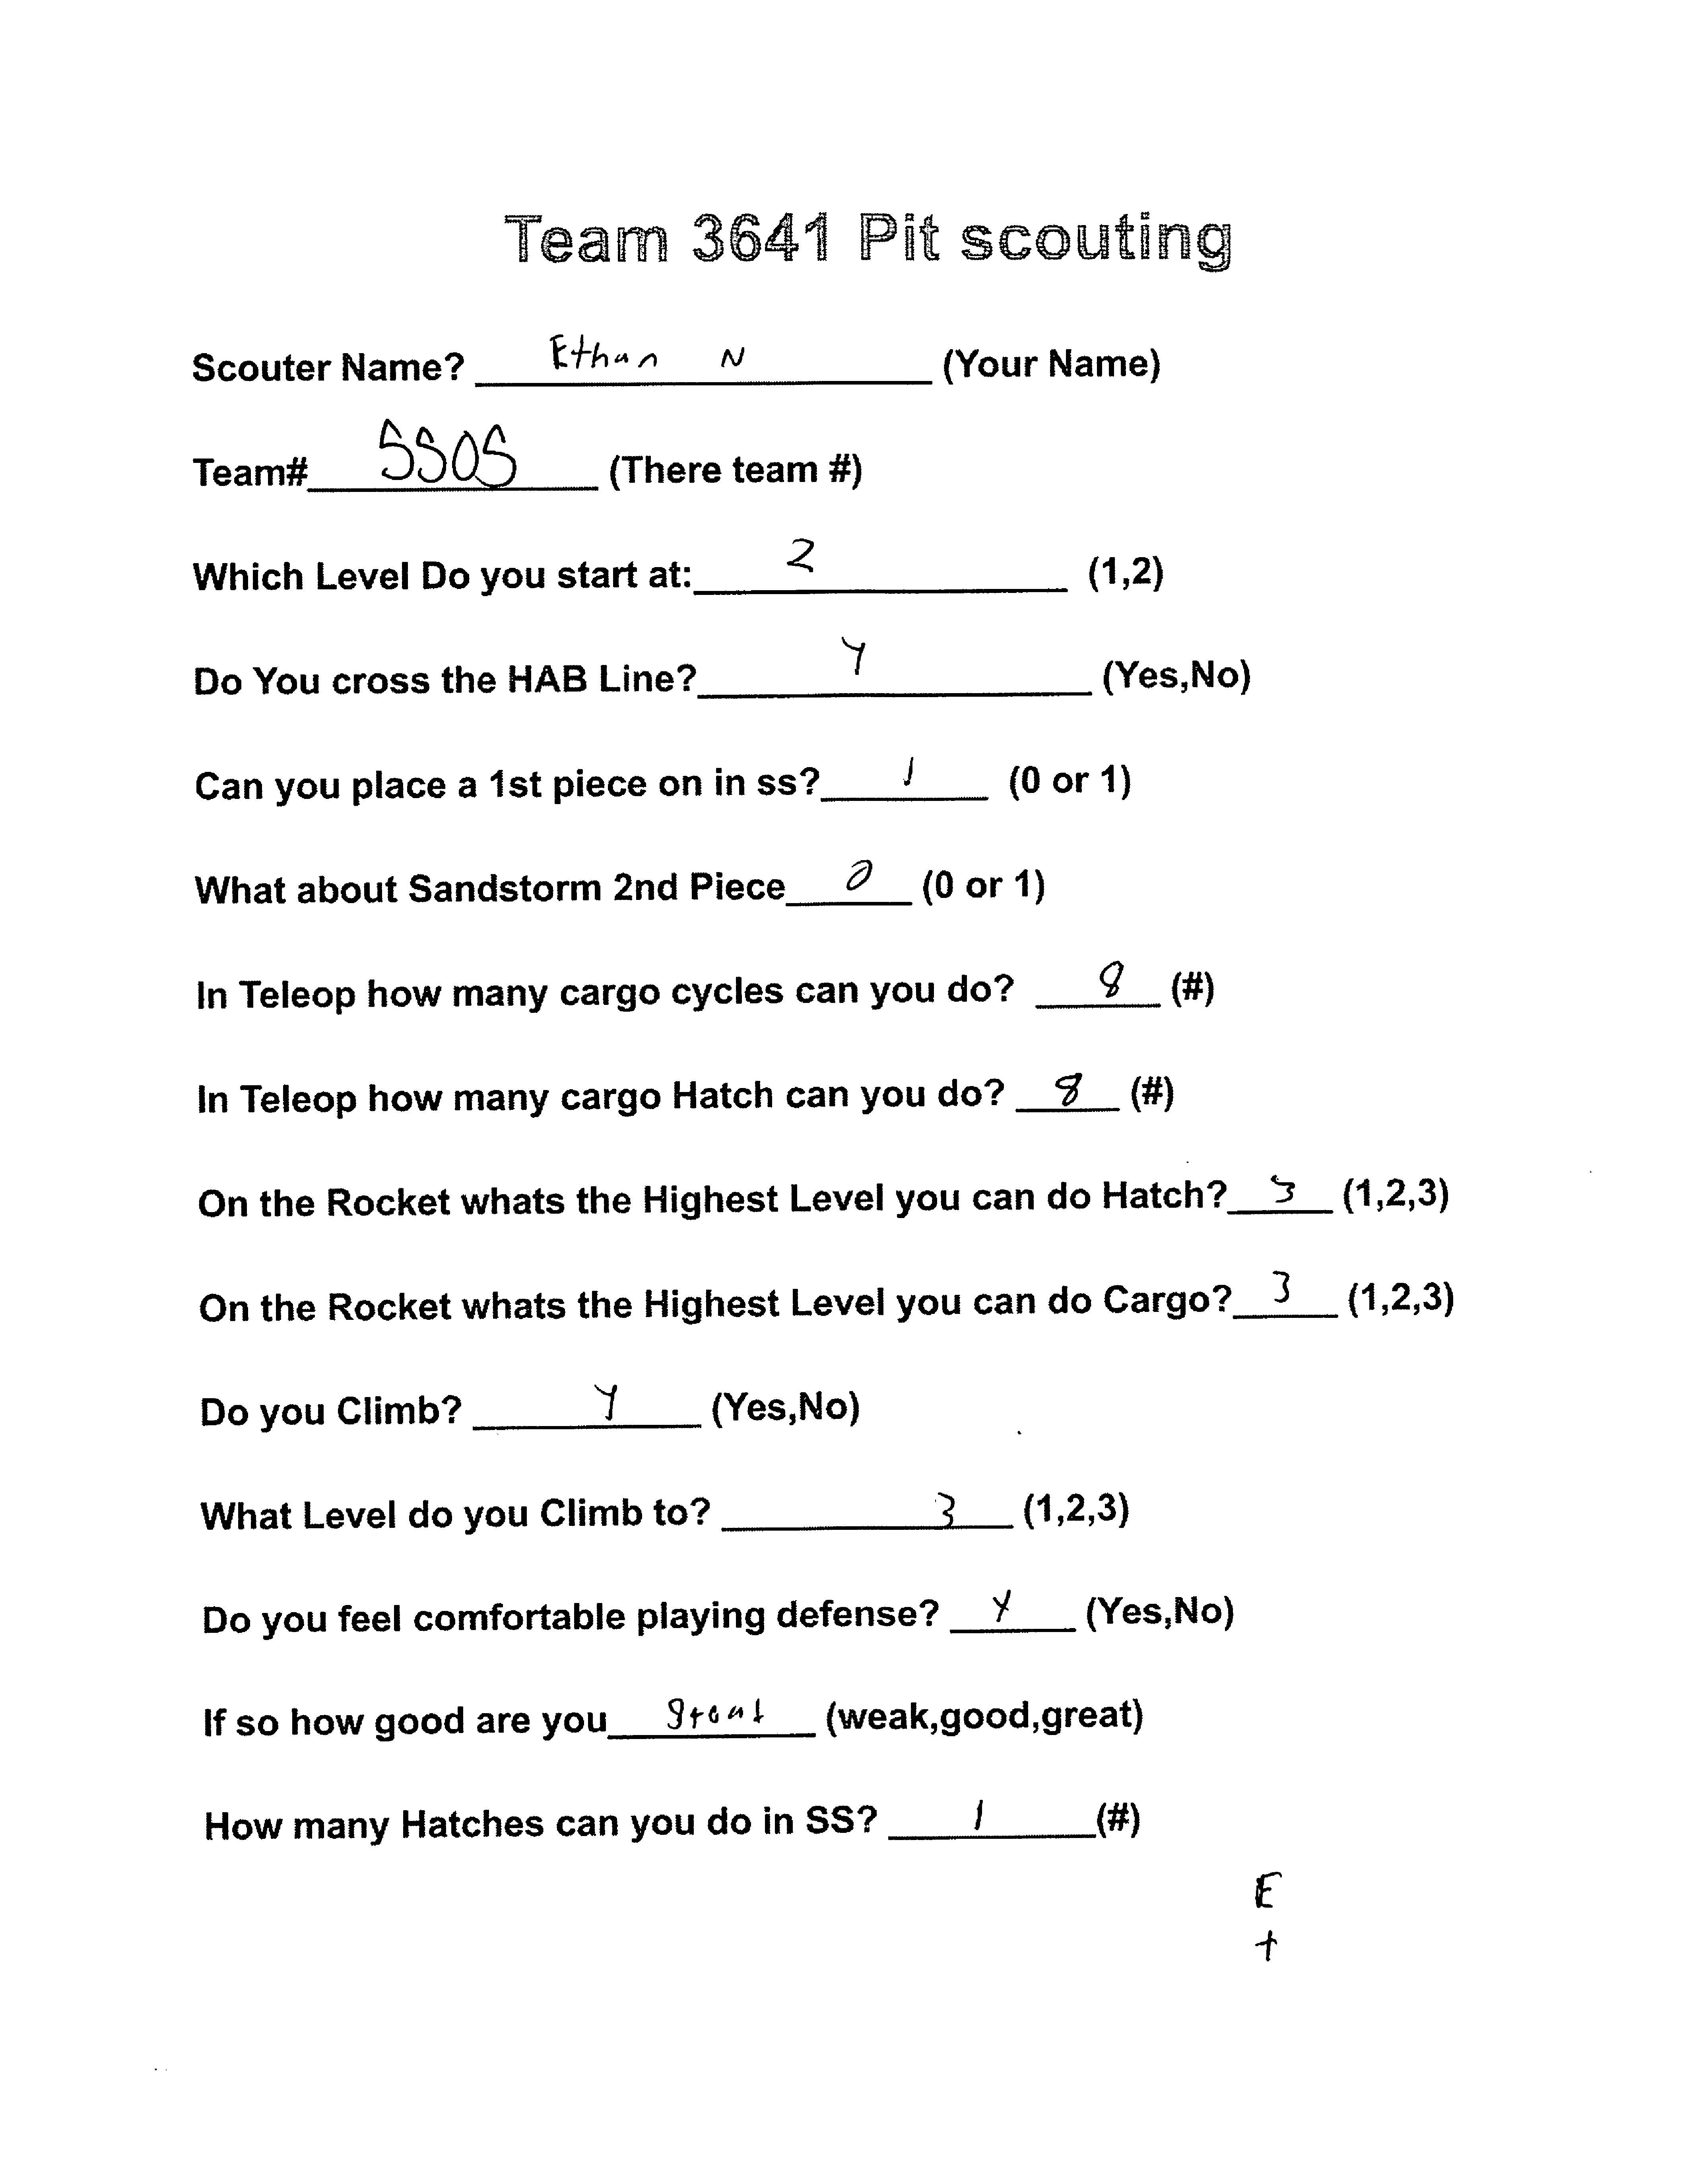 Team 3641 Pit scouting
Scouter Name? Ethan N (Your Name)
Team# 5505 (There team #)
Which Level Do you start at: 2 (1,2)
Do You cross the HAB Line? Y (Yes,No)
Can you place a 1st piece on in ss? 1 (0 or 1)
What about Sandstorm 2nd Piece 0 (0 or 1)
In Teleop how many cargo cycles can you do? 8 (#)
In Teleop how many cargo Hatch can you do? 8 (#)
On the Rocket whats the Highest Level you can do Hatch? 3 (1,2,3)
On the Rocket whats the Highest Level you can do Cargo? 3 (1,2,3)
Do you Climb? Y (Yes,No)
What Level do you Climb to? 3 (1,2,3)
Do you feel comfortable playing defense? Y (Yes,No)
If so how good are you great (weak,good,great)
How many Hatches can you do in SS? 1 (#)
E
t